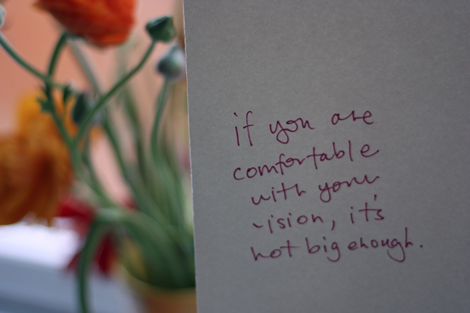 if you are
comfortable
with your
vision, it's
not big enough.